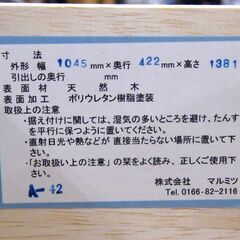 寸法
外形 幅 1045mm×奥行 422mm×高さ 1381
引出しの奥行 mm
表面材 天然木
表面加工 ポリウレタン樹脂塗装
取扱上の注意
・据え付けに関しては、湿気の多いところを避け、たんす
を平行に保つようにに置いてください。
・直射日光や熱などが 直接当たらない場所に置いて下
さい。
・「お取扱い上の注意」の栞をよく読み、正しくご使用下
さい。
株式会社 マルミツ
A-42
Tel. 0166-82-2116